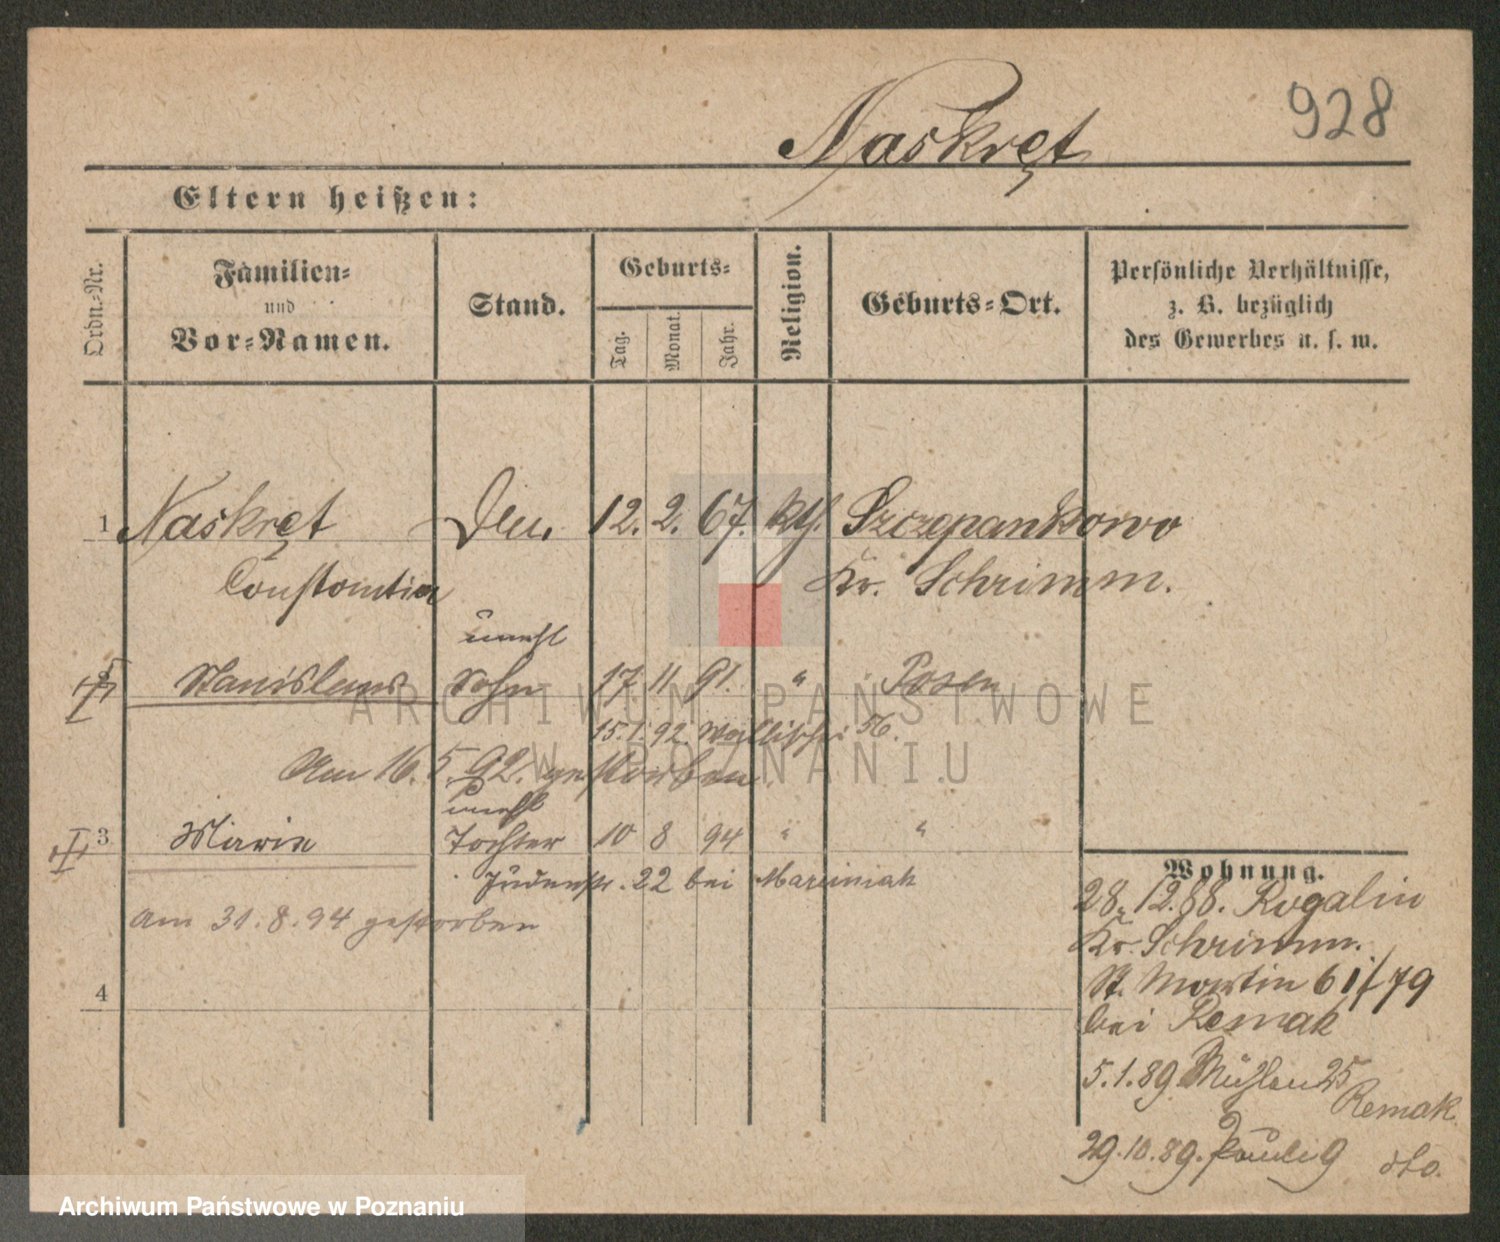 928
Naskręt
Eltern heißen:
Ordn.-Nr.
Familien-
und
Vor-Namen.
Stand.
Geburts-
Tag.
Monat.
Jahr.
Religion.
Geburts-Ort.
Persönliche Verhältnisse,
z. B. bezüglich
des Gewerbes u. s. w.
1 Naskręt 12. 2. 67. kth. Szczepankowo
Constantia Kr. Schrimm.
unehl
Stanislaus Sohn 17 11 91. " Posen
15.1.92. Wallischei 56.
Am 16. 5. 92. gestorben
unehl
3 Maria Tochter 10 8 94 " "
Judenstr. 22 bei Marciniak
am 31.8.94 gestorben
4
Wohnung.
28. 12. 88. Rogalin
Kr. Schrimm.
St. Martin 61/79
bei Remak
5.1.89. Mühlen 25
Remak.
29.10.89. Pauli 9 dto.
ARCHIWUM PAŃSTWOWE
W POZNANIU
Archiwum Państwowe w Poznaniu